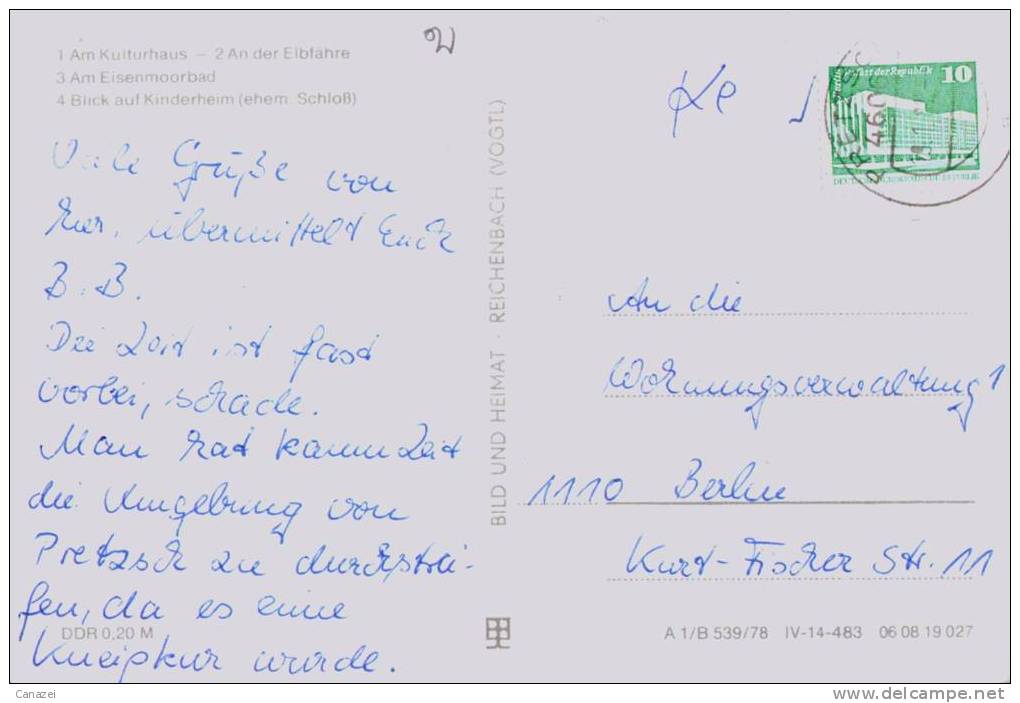 1 Am Kulturhaus – 2 An der Elbfähre
3 Am Eisenmoorbad
4 Blick auf Kinderheim (ehem. Schloß)
Viele Grüße von
hier, übermittelt Euch
B. B.
Die Zeit ist fast
vorbei, schade.
Man hat kaum Zeit
die Umgebung von
Pretzsch zu durchstrei-
fen, da es eine
Kneipkur wurde.
DDR 0,20 M
BILD UND HEIMAT · REICHENBACH (VOGTL)
der Republik 10
PRETZSC
4606
An die
Wohnungsverwaltung 1
1110 Berlin
Kurt-Fischer Str. 11
A 1/B 539/78 IV-14-483 06 08 19 027
Canazei
http://www.delcampe.net